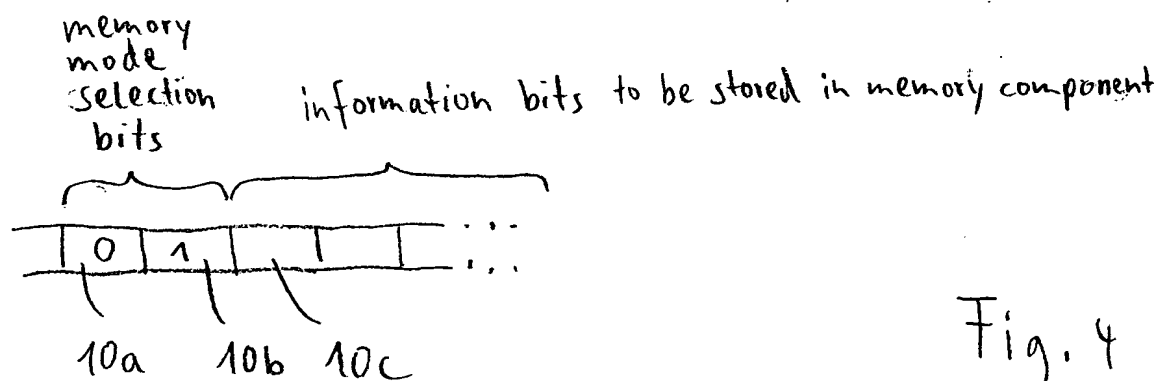 memory
mode
selection
bits
information bits to be stored in memory component
0 1
10a 10b 10c
Fig. 4